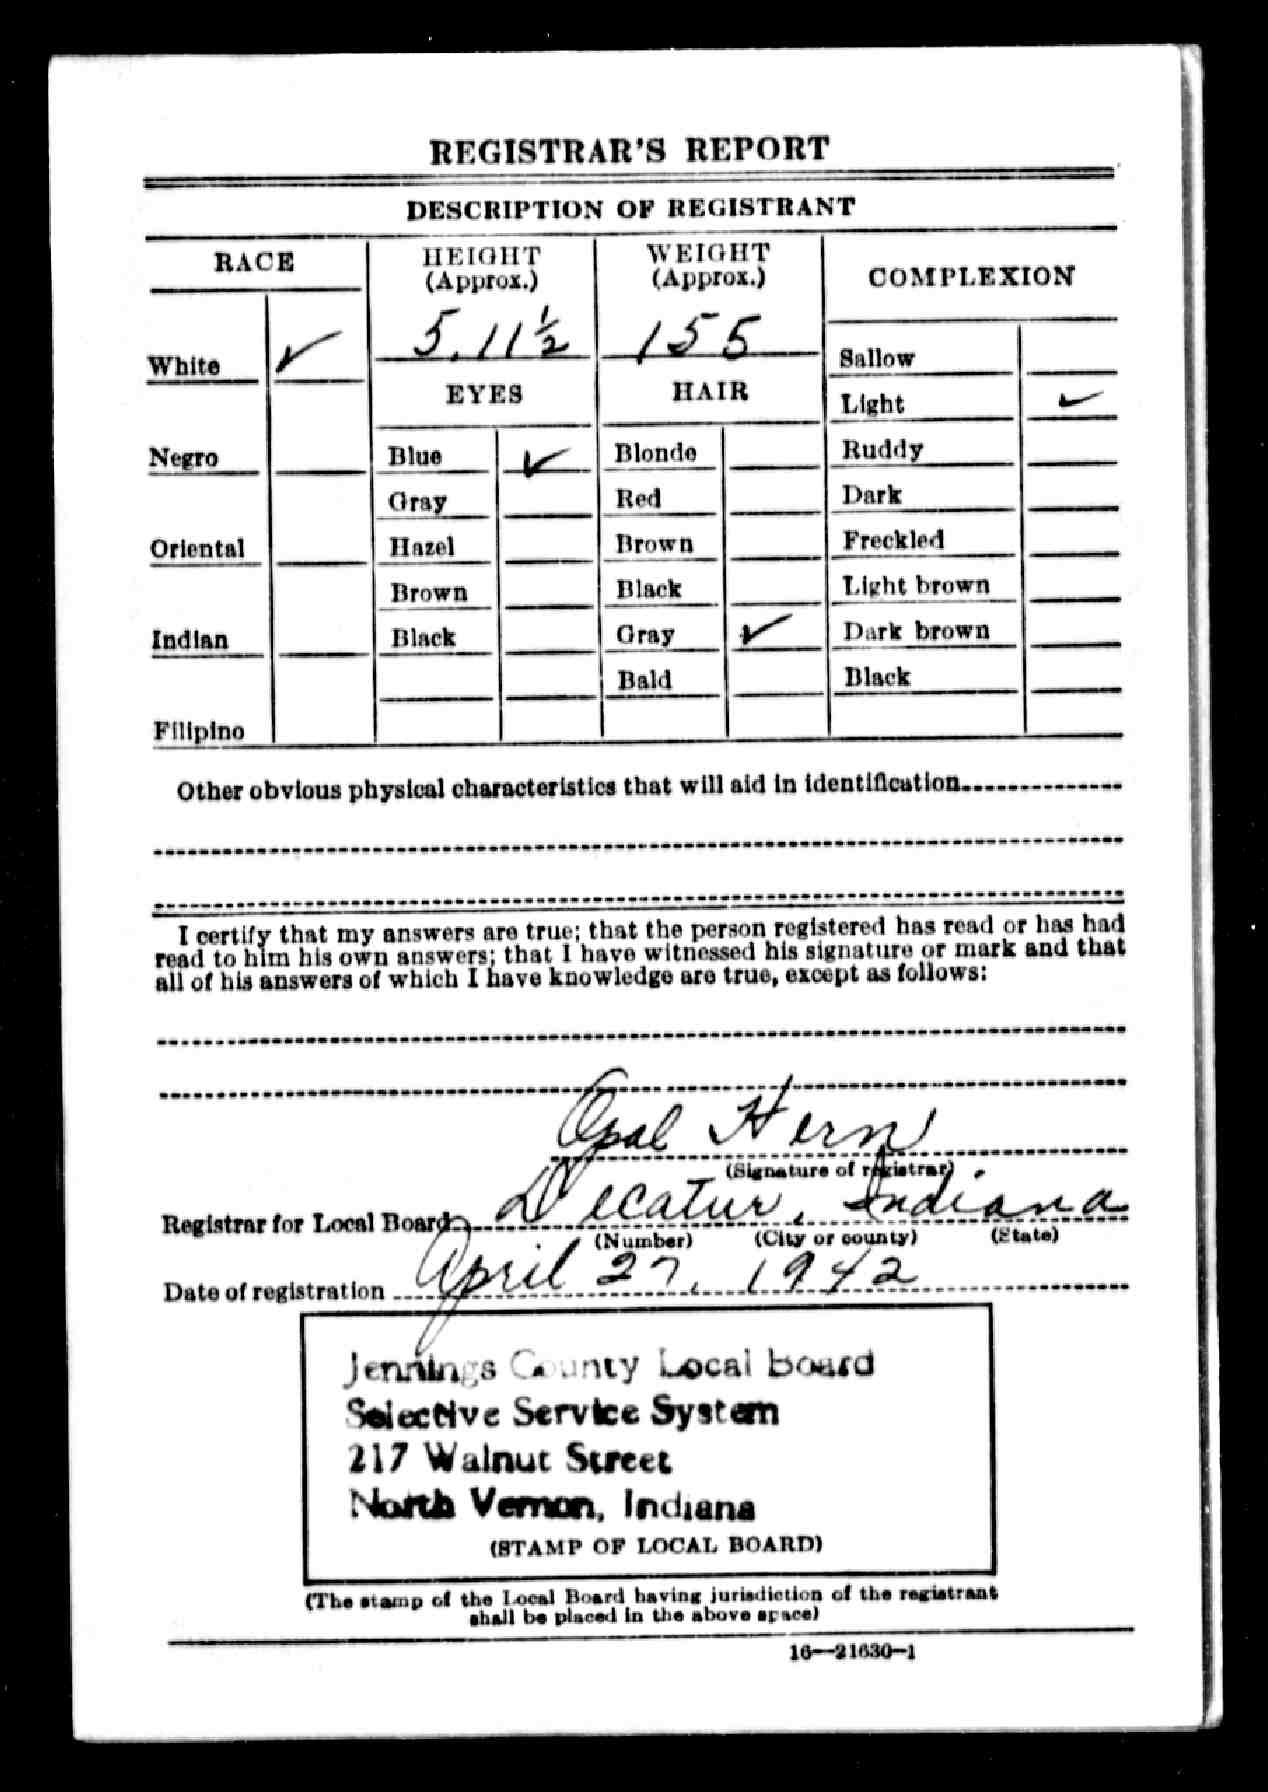 REGISTRAR'S REPORT
DESCRIPTION OF REGISTRANT
RACE
HEIGHT
(Approx.)
WEIGHT
(Approx.)
COMPLEXION
5, 11 1/2
155
White ✓
Sallow
EYES
HAIR
Light ✓
Negro
Blue ✓
Blonde
Ruddy
Gray
Red
Dark
Oriental
Hazel
Brown
Freckled
Brown
Black
Light brown
Indian
Black
Gray ✓
Dark brown
Bald
Black
Filipino
Other obvious physical characteristics that will aid in identification
I certify that my answers are true; that the person registered has read or has had
read to him his own answers; that I have witnessed his signature or mark and that
all of his answers of which I have knowledge are true, except as follows:
Opal Hern
(Signature of registrar)
Registrar for Local Board Decatur, Indiana
(Number) (City or county) (State)
Date of registration April 27, 1942
Jennings County Local Board
Selective Service System
217 Walnut Street
North Vernon, Indiana
(STAMP OF LOCAL BOARD)
(The stamp of the Local Board having jurisdiction of the registrant
shall be placed in the above space)
16—21630-1